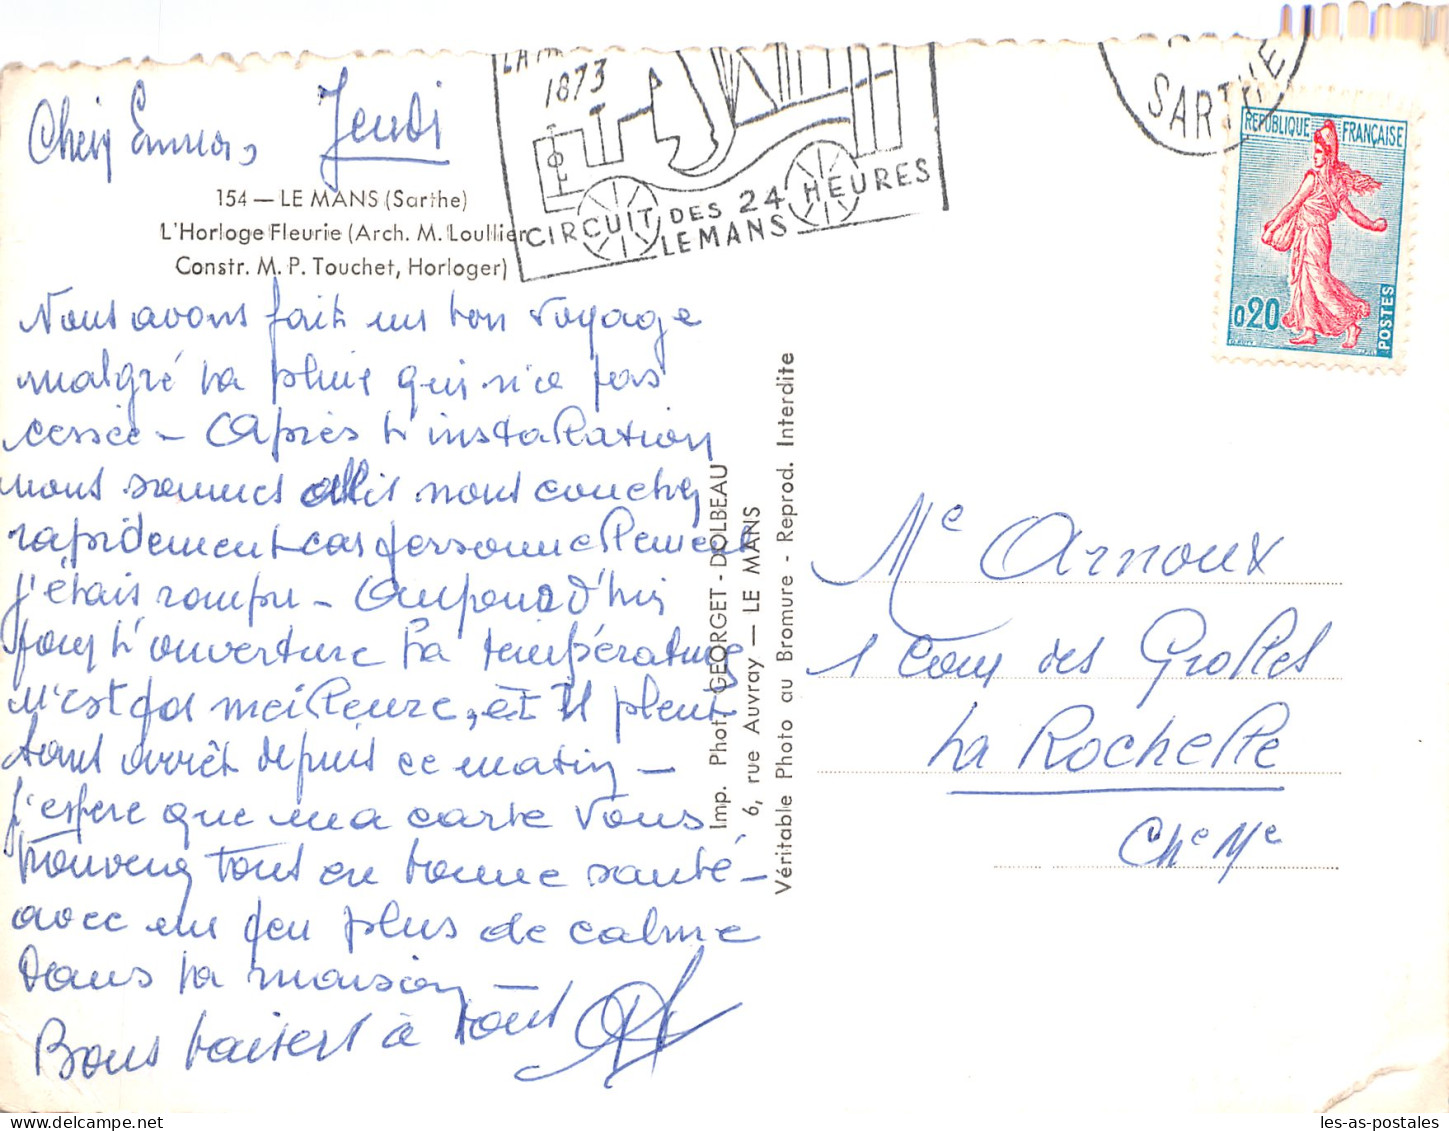 Jeudi
154 — LE MANS (Sarthe)
L'Horloge Fleurie (Arch. M. Loullier
Constr. M. P. Touchet, Horloger)
1873
CIRCUIT DES 24 HEURES
LE MANS
SARTHE
REPUBLIQUE FRANÇAISE
0,20
POSTES
Nous avons fait un bon voyage
malgré la pluie qui n'a pas
cessée – Après l'installation
nous sommes allés nous coucher
rapidement car personnellement
j'étais rompu – Aujourd'hui
pour l'ouverture la température
n'est pas meilleure, et il pleut
sans arrêt depuis ce matin –
J'espère que ma carte vous
trouvera tous en bonne santé –
avec un peu plus de calme
dans la maison –
Bons baisers à tous
Imp. Phot. GEORGET - DOLBEAU
6, rue Auvray — LE MANS
Véritable Photo au Bromure - Reprod. Interdite
Me Arnoux
1 Cour des Grolles
La Rochelle
Che Me
les-as-postales.com